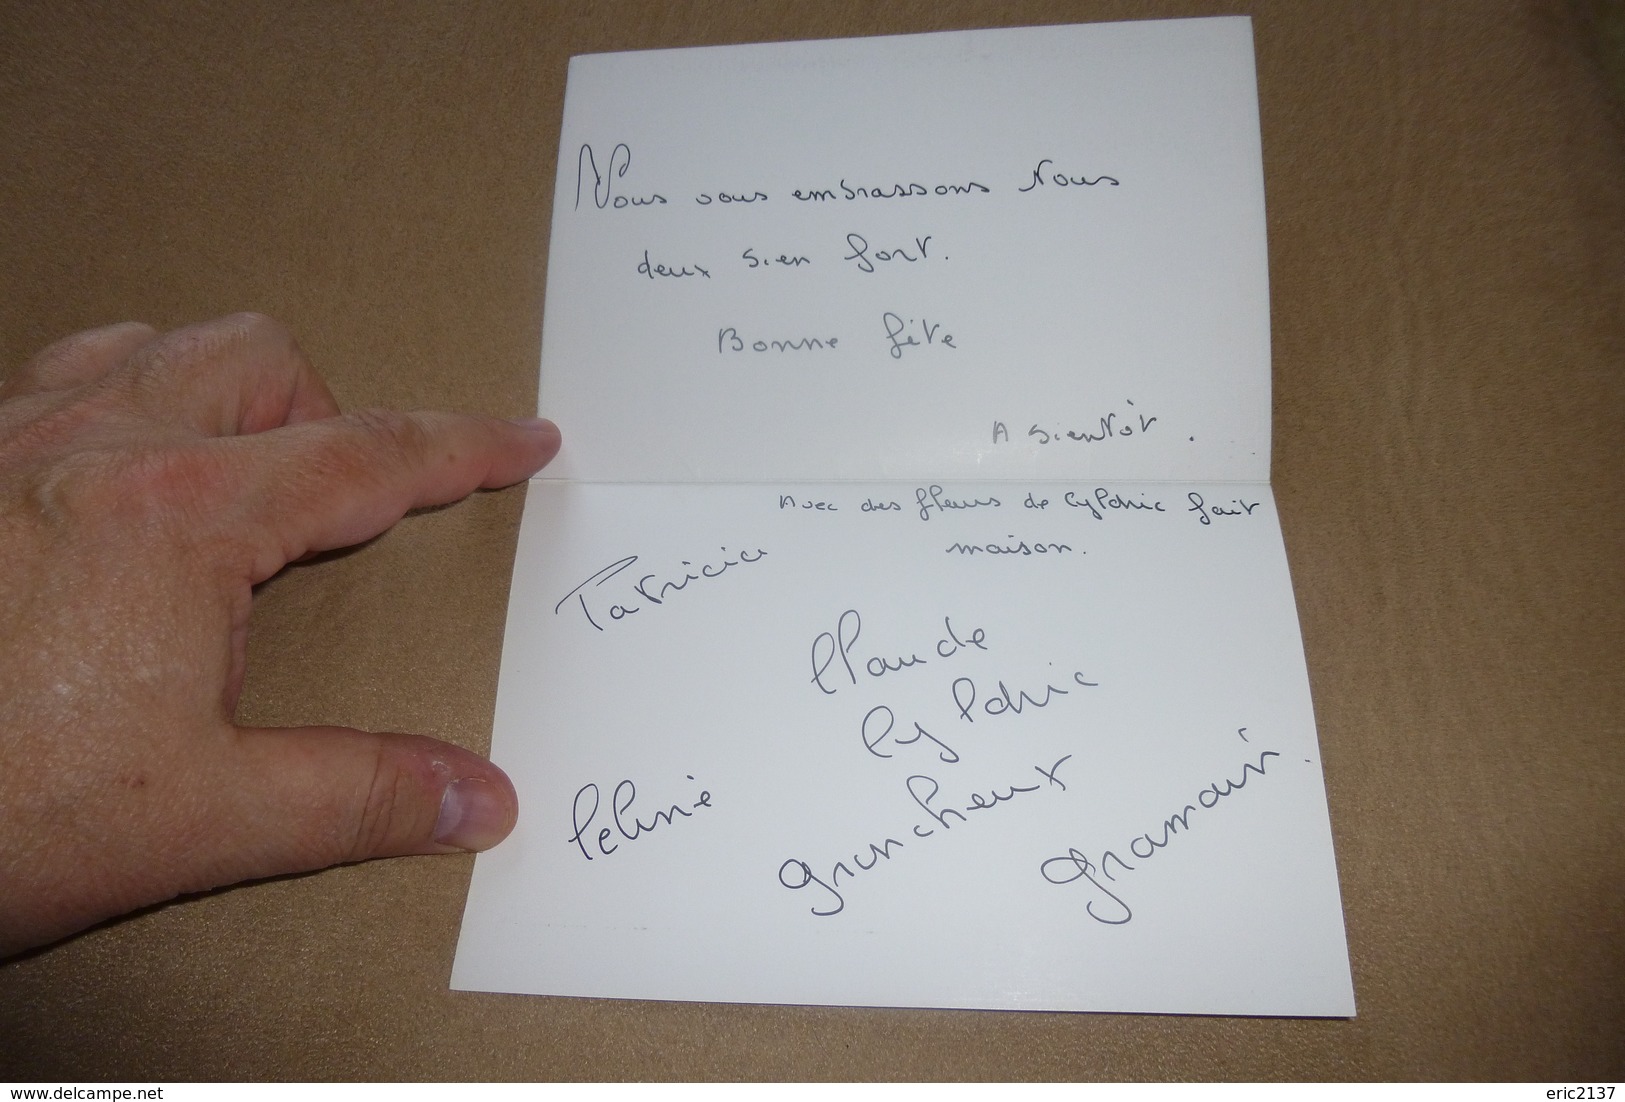 Nous vous embrassons Nous
deux bien fort.
Bonne fête
A bientôt.
Avec des fleurs de Cyldric fait
maison.
Patricia
Claude
Cyldric
Celine
grancheux
gramain.
www.delcampe.net
eric2137